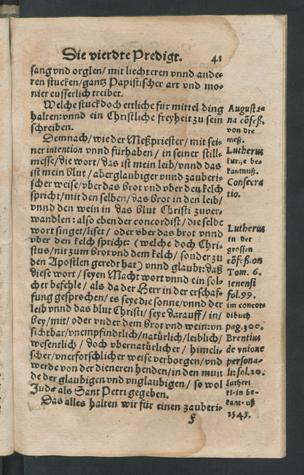 Die vierdte Predigt. 41
sang vnd orglen/ mit liechteren vnnd ande-
ren stucken/ gantz Papistischer art vnd mo-
nier eusserlich treibet.
Welche stuck doch ettliche für mittel ding
halten: vnnd ein Christliche freyheit zu sein
schreiben.
Demnach/ wie der Meßpriester/ mit sei-
ner intention vnnd fürhaben/ in seiner still-
messe/ die wort/ das ist mein leib/ vnnd das
ist mein blut/ abergläubiger vnnd zauberi-
scher weise/ vber das brot vnd vber den kelch
spricht/ mit den selben/ das brot in den leib/
vnd den wein in das blut Christi zuver-
wandlen: also eben der concordist/ die selbe
wort singet/ liset/ oder vber das brot vnnd
vber den kelch spricht ( welche doch Chri-
stus/ nit zum brot vnd dem kelch/ sonder zu
den Apostlen geredt hat) vnnd glaubt/ daß
diese wort/ seyen Macht wort vnnd ein sol-
cher befehle/ als da der Herr in der erschaf-
fung gesprochen/ es seye die sonne/ vnnd der
leib vnnd das blut Christi/ seye darauff/ in/
bey/ mit/ oder vnder dem brot vnd wein: vn
sichtbar/ vnempfindtlich/ natürlich/ leiblich/
wesentlich/ doch vbernatürlicher/ himeli-
scher/ vnerforschlicher weise verborgen/ vnd
werde von der dieneren henden/ in den mun
de der glaubigen vnd vnglaubigen/ so wol
Judæ als Sanct Petri gegeben.
Das alles halten wir für einen zauberi-
f
von der
meß.
Lutherus
Consecra
tio.
Lutherus
in der
grossen
Tom. 6.
fol. 99.
im concor
dibuch
pag. 100.
Brentius
de vnione
persona-
1545.